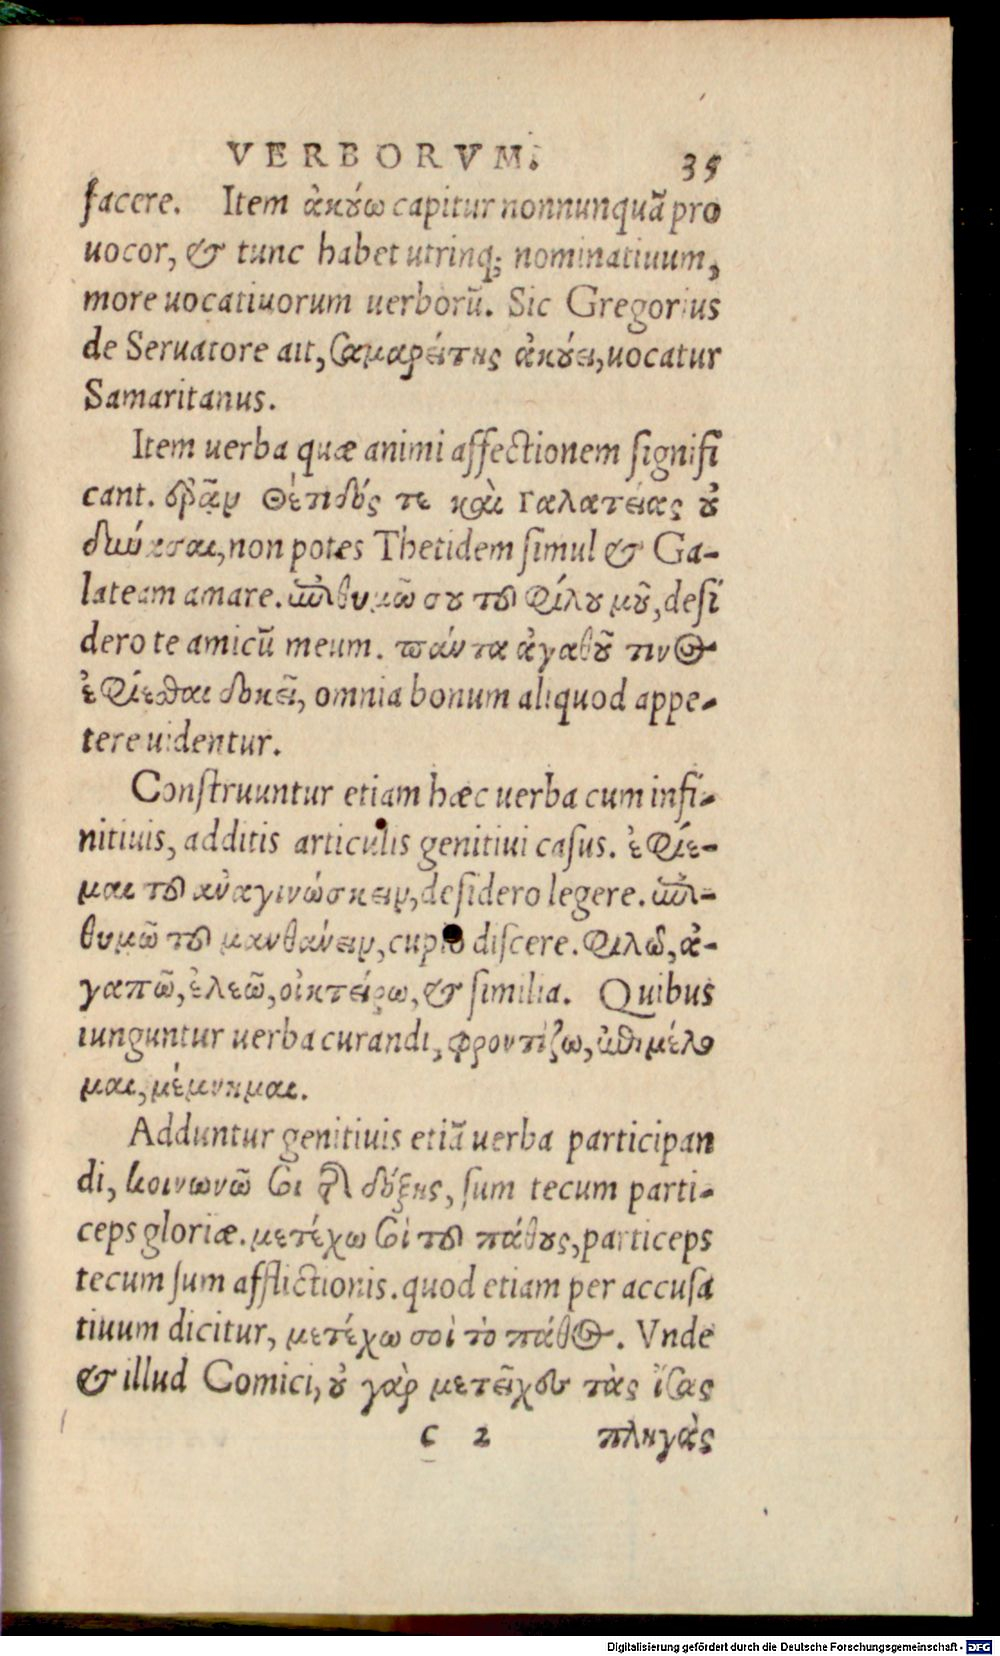 VERBORVM. 35
facere. Item ἀκούω capitur nonnunquā pro
uocor, & tunc habet utrinq; nominatiuum,
more uocatiuorum uerborū. Sic Gregorius
de Seruatore ait, Σαμαρείτης ἀκούει, uocatur
Samaritanus.
Item uerba quæ animi affectionem signifi
cant. ἐρᾶν Θέτιδός τε καὶ Γαλατείας οὐ
δύνασαι, non potes Thetidem simul & Ga-
lateam amare. ἐπιθυμῶ σου τοῦ φίλου μοῦ, desi
dero te amicū meum. πάντα ἀγαθοῦ τινος
ἐφίεσθαι δοκεῖ, omnia bonum aliquod appe-
tere uidentur.
Construuntur etiam hæc uerba cum infi-
nitiuis, additis articulis genitiui casus. ἐφίε-
μαι τοῦ ἀναγινώσκειν, desidero legere. ἐπι-
θυμῶ τοῦ μανθάνειν, cupio discere. φιλῶ, ἀ-
γαπῶ, ἐλεῶ, οἰκτείρω, & similia. Quibus
iunguntur uerba curandi, φροντίζω, ἐπιμέλο
μαι, μέμνημαι.
Adduntur genitiuis etiā uerba participan
di, κοινωνῶ σοι τῆς δόξης, sum tecum parti-
ceps gloriæ. μετέχω σοὶ τοῦ πάθους, particeps
tecum sum afflictionis. quod etiam per accusa
tiuum dicitur, μετέχω σοὶ τὸ πάθος. Vnde
& illud Comici, οὐ γὰρ μετεῖχου τὰς ἴσας
C 2 πληγὰς
Digitalisierung gefördert durch die Deutsche Forschungsgemeinschaft - DFG